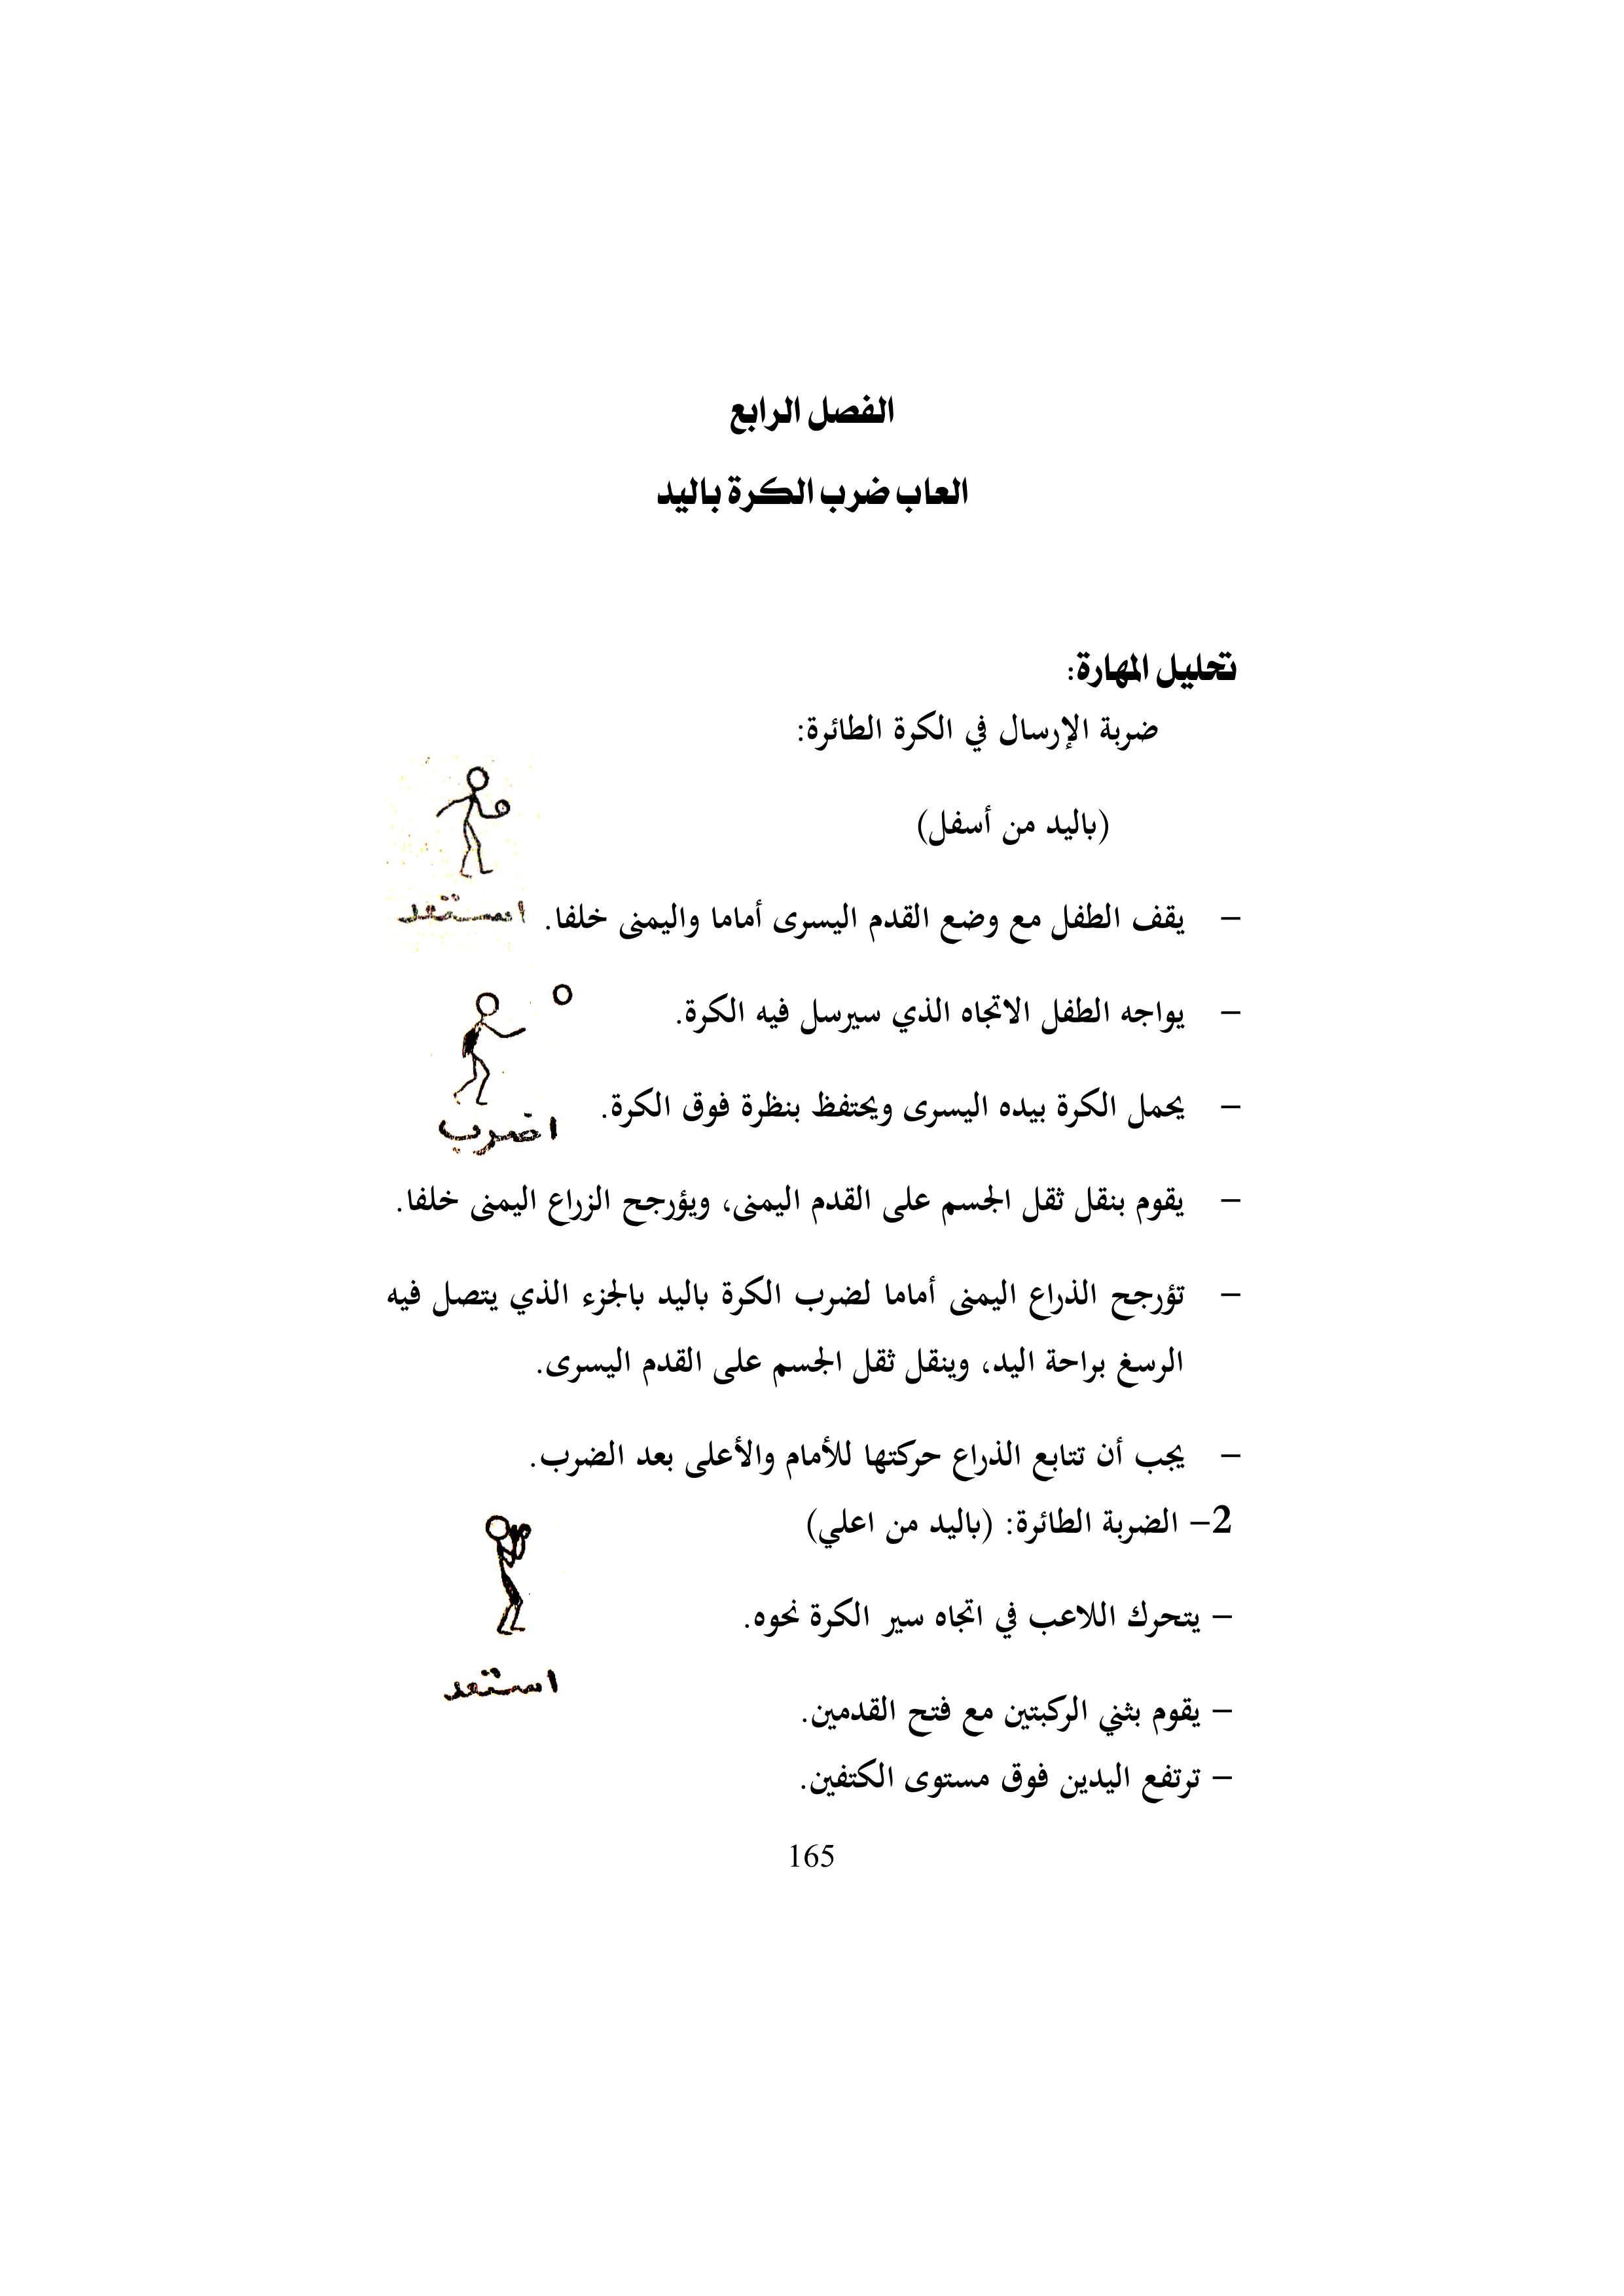 الفصل الرابع
العاب ضرب الكرة باليد
تحليل المهارة:
ضربة الإرسال في الكرة الطائرة:
(باليد من أسفل)
– يقف الطفل مع وضع القدم اليسرى أماما واليمنى خلفا.
استعد
– يواجه الطفل الاتجاه الذي سيرسل فيه الكرة.
– يحمل الكرة بيده اليسرى ويحتفظ بنظرة فوق الكرة.
اضرب
– يقوم بنقل ثقل الجسم على القدم اليمنى، ويؤرجح الزراع اليمنى خلفا.
– تؤرجح الذراع اليمنى أماما لضرب الكرة باليد بالجزء الذي يتصل فيه
الرسغ براحة اليد، وينقل ثقل الجسم على القدم اليسرى.
– يجب أن تتابع الذراع حركتها للأمام والأعلى بعد الضرب.
2– الضربة الطائرة: (باليد من اعلي)
– يتحرك اللاعب في اتجاه سير الكرة نحوه.
استعد
– يقوم بثني الركبتين مع فتح القدمين.
– ترتفع اليدين فوق مستوى الكتفين.
165